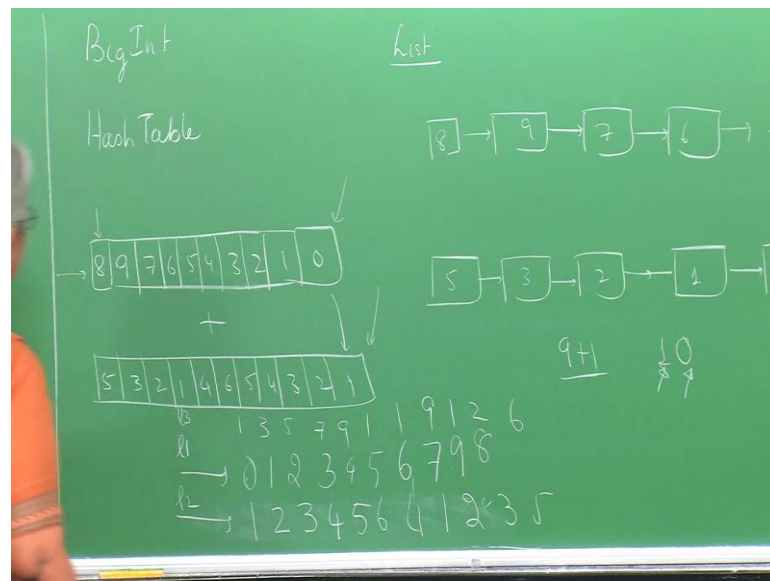 BigInt
List
Hash Table
8 9 7 6
8 9 7 6 5 4 3 2 1 0
5 3 2 1
+
9+1 10
5 3 2 1 4 6 5 4 3 2 1
l3 1 3 5 7 9 1 1 9 1 2 6
l1 0 1 2 3 4 5 6 7 9 8
l2 1 2 3 4 5 6 4 1 2 3 5